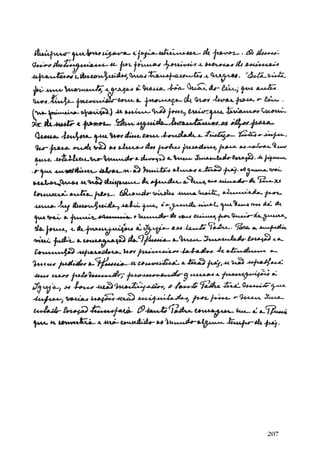 desespero que horrorizava e fazia estremecer de pavor. Os demó-
nios destinguiam-se por formas horríveis e ascrosas de animais
espantosos e desconhecidos, mas transparentes e negros. Esta vista
foi um momento, e graças à nossa bôa Mãe do Céu, que antes
nos tinha prevenido com a promeça de nos levar para o Céu
(na primeira aparição) se assim não fosse, creio que teríamos morri-
do de susto e pavor. Em seguida, levantámos os olhos para
Nossa Senhora que nos disse com bondade e tristeza: Vistes o infer-
no, para onde vão as almas dos pobres pecadores, para as salvar, Deus
quer establecer no mundo a devoção a meu Imaculado Coração. Se fizerem
o que eu disser salvar-se-ão muitas almas e terão paz. A guerra vai
acabar, mas se não deixarem de ofender a Deus, no reinado de Pio XI
começará outra peor. Quando virdes uma noite, alumiada por
uma luz desconhecida, sabei que é o grande sinal que Deus vos dá de
que vai a punir o mundo de seus crimes, por meio da guerra,
da fome e de perseguições à Igreja e ao Santo Padre. Para a impedir
virei pedir a consagração da Rússia a meu Imaculado Coração e a
Comunhão reparadora nos primeiros sábados. Se atenderem a
meus pedidos a Rússia se converterá e terão paz, se não espalhará
seus erros pelo mundo, promovendo guerras e perseguições à
Igreja, os bons serão martirizados, o Santo Padre terá muito que
sufrer, várias nações serão aniquiladas, por fim o meu Ima-
culado Coração triunfará. O Santo Padre consagrar-me-á a Rússia
que se converterá e será concedido ao mundo algum tempo de paz.
207